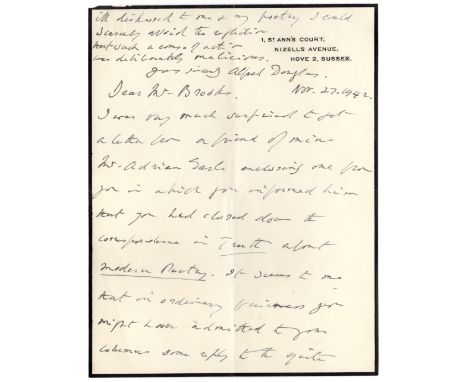 ill disposed to me & my poetry I could
scarcely avoid the reflection
that such a course of action
was deliberately malicious.
Yours sincerely Alfred Douglas
1, ST ANN'S COURT,
NIZELLS AVENUE,
HOVE 2, SUSSEX.
Nov. 27. 1942.
Dear Mr Brooks.
I was very much surprised to get
a letter from a friend of mine
Mr. Adrian Earle enclosing one from
you in which you informed him
that you had closed down the
correspondence in Truth about
modern Poetry. It seems to me
that in ordinary fairness you
might have admitted to your
columns some reply to the quite